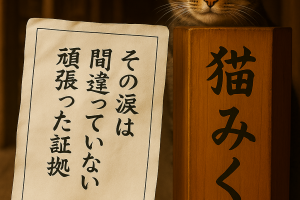 その涙は
間違っていない
頑張った証拠
猫みく